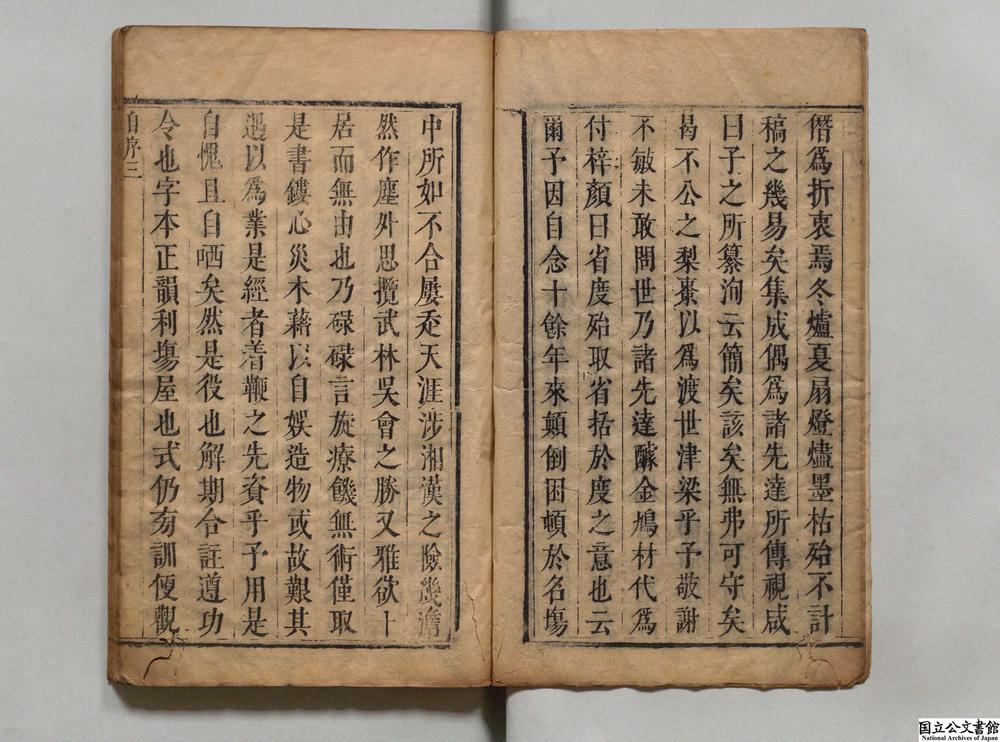 僭爲折衷焉冬爐夏扇燈燼墨枯殆不計
稿之幾易矣集成偶爲諸先達所傳視咸
曰子之所纂洵云簡矣該矣無弗可守矣
曷不公之梨棗以爲渡世津梁乎予敬謝
不敏未敢問世乃諸先達醵金鳩材代爲
付梓顏曰省度殆取省括於度之意也云
爾予因自念十餘年來顛倒困頓於名塲
中所如不合屢走天涯涉湘漢之險幾澹
然作塵外思攬武林吳會之勝又雅欲卜
居而無由也乃碌碌言旋療饑無術僅取
是書鏤心災木藉以自娛造物或故艱其
遇以爲業是經者着鞭之先資乎予用是
自愧且自哂矣然是役也解期合註遵功
令也字本正韻利塲屋也式仍夯訓便觀
自序三
国立公文書館
National Archives of Japan